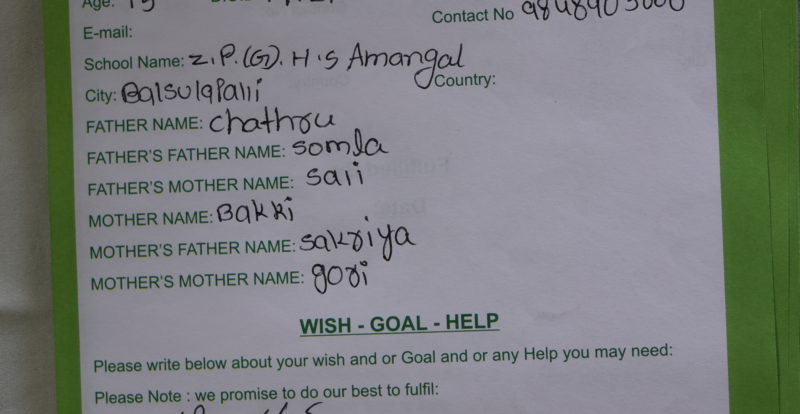 Age: 15
Contact No
E-mail:
School Name: Z.P.(G). H.S Amangal
City: Balsulapalli Country:
FATHER NAME: chathru
FATHER'S FATHER NAME: somla
FATHER'S MOTHER NAME: sali
MOTHER NAME: Bakki
MOTHER'S FATHER NAME: sakriya
MOTHER'S MOTHER NAME: gori
WISH - GOAL - HELP
Please write below about your wish and or Goal and or any Help you may need:
Please Note : we promise to do our best to fulfil: